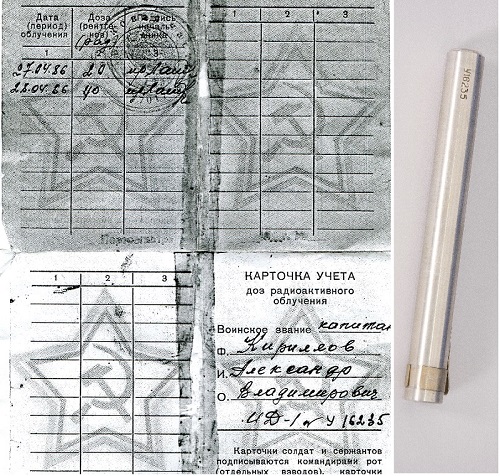 Дата
(период)
облучения
Доза
(рентге-
нов)
(рад)
1
2
3
1
2
3
27.04.86 20
28.04.86 40
1
2
3
КАРТОЧКА УЧЕТА
доз радиоактивного
облучения
Воинское звание капитан
Ф. Кириллов
И. Александр
О. Владимирович
ИД-1 У 16235
Карточки солдат и сержантов
подписываются командирами рот
(отдельных взводов), карточки
У16235